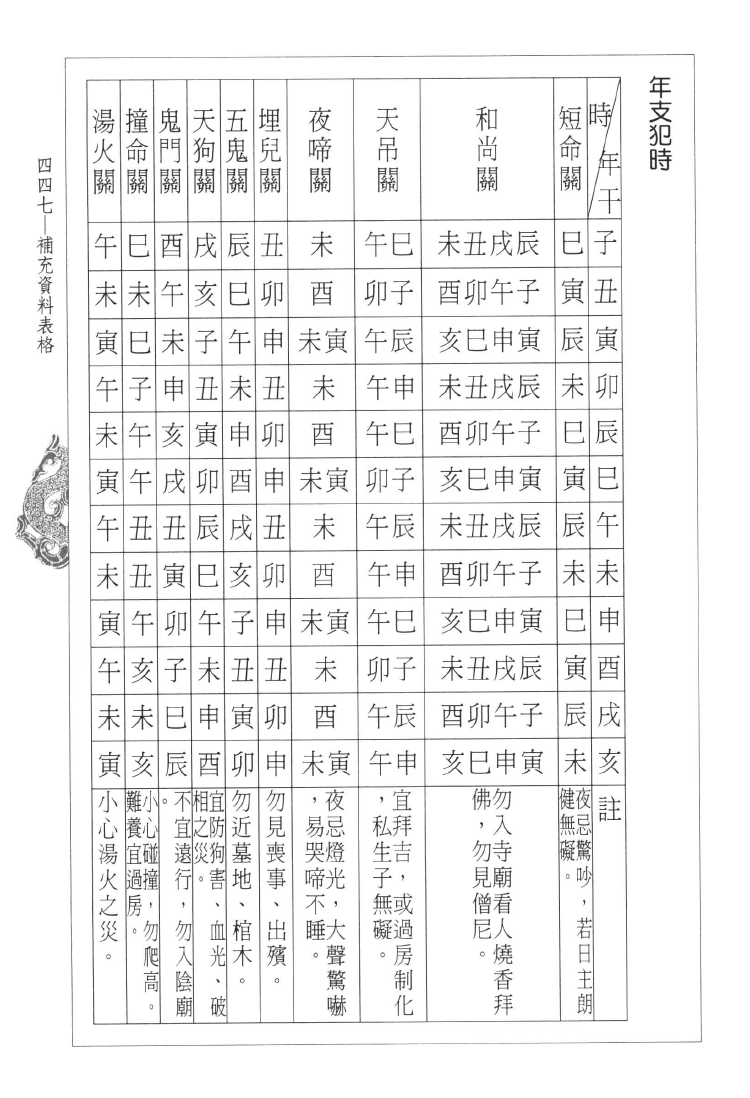 年支犯時
時 年干 子 丑 寅 卯 辰 巳 午 未 申 酉 戌 亥 註
短命關 巳 寅 辰 未 巳 寅 辰 未 巳 寅 辰 未 夜忌驚吵，若日主朗
健無礙。
和尚關 辰戌丑未 子午卯酉 寅申巳亥 辰戌丑未 子午卯酉 寅申巳亥 辰戌丑未 子午卯酉 寅申巳亥 辰戌丑未 子午卯酉 寅申巳亥 勿入寺廟看人燒香拜
佛，勿見僧尼。
天吊關 巳午 子卯 辰午 申午 巳午 子卯 辰午 申午 巳午 子卯 辰午 申午 宜拜吉，或過房制化
，私生子無礙。
夜啼關 未 酉 寅未 未 酉 寅未 未 酉 寅未 未 酉 寅未 夜忌燈光，大聲驚嚇
，易哭啼不睡。
埋兒關 丑 卯 申 丑 卯 申 丑 卯 申 丑 卯 申 勿見喪事、出殯。
五鬼關 辰 巳 午 未 申 酉 戌 亥 子 丑 寅 卯 勿近墓地、棺木。
天狗關 戌 亥 子 丑 寅 卯 辰 巳 午 未 申 酉 宜防狗害、血光、破
相之災。
鬼門關 酉 午 未 申 亥 戌 丑 寅 卯 子 巳 辰 不宜遠行，勿入陰廟
。
撞命關 巳 未 巳 子 午 午 丑 丑 午 亥 未 亥 小心碰撞，勿爬高。
難養宜過房。
湯火關 午 未 寅 午 未 寅 午 未 寅 午 未 寅 小心湯火之災。
四四七—補充資料表格